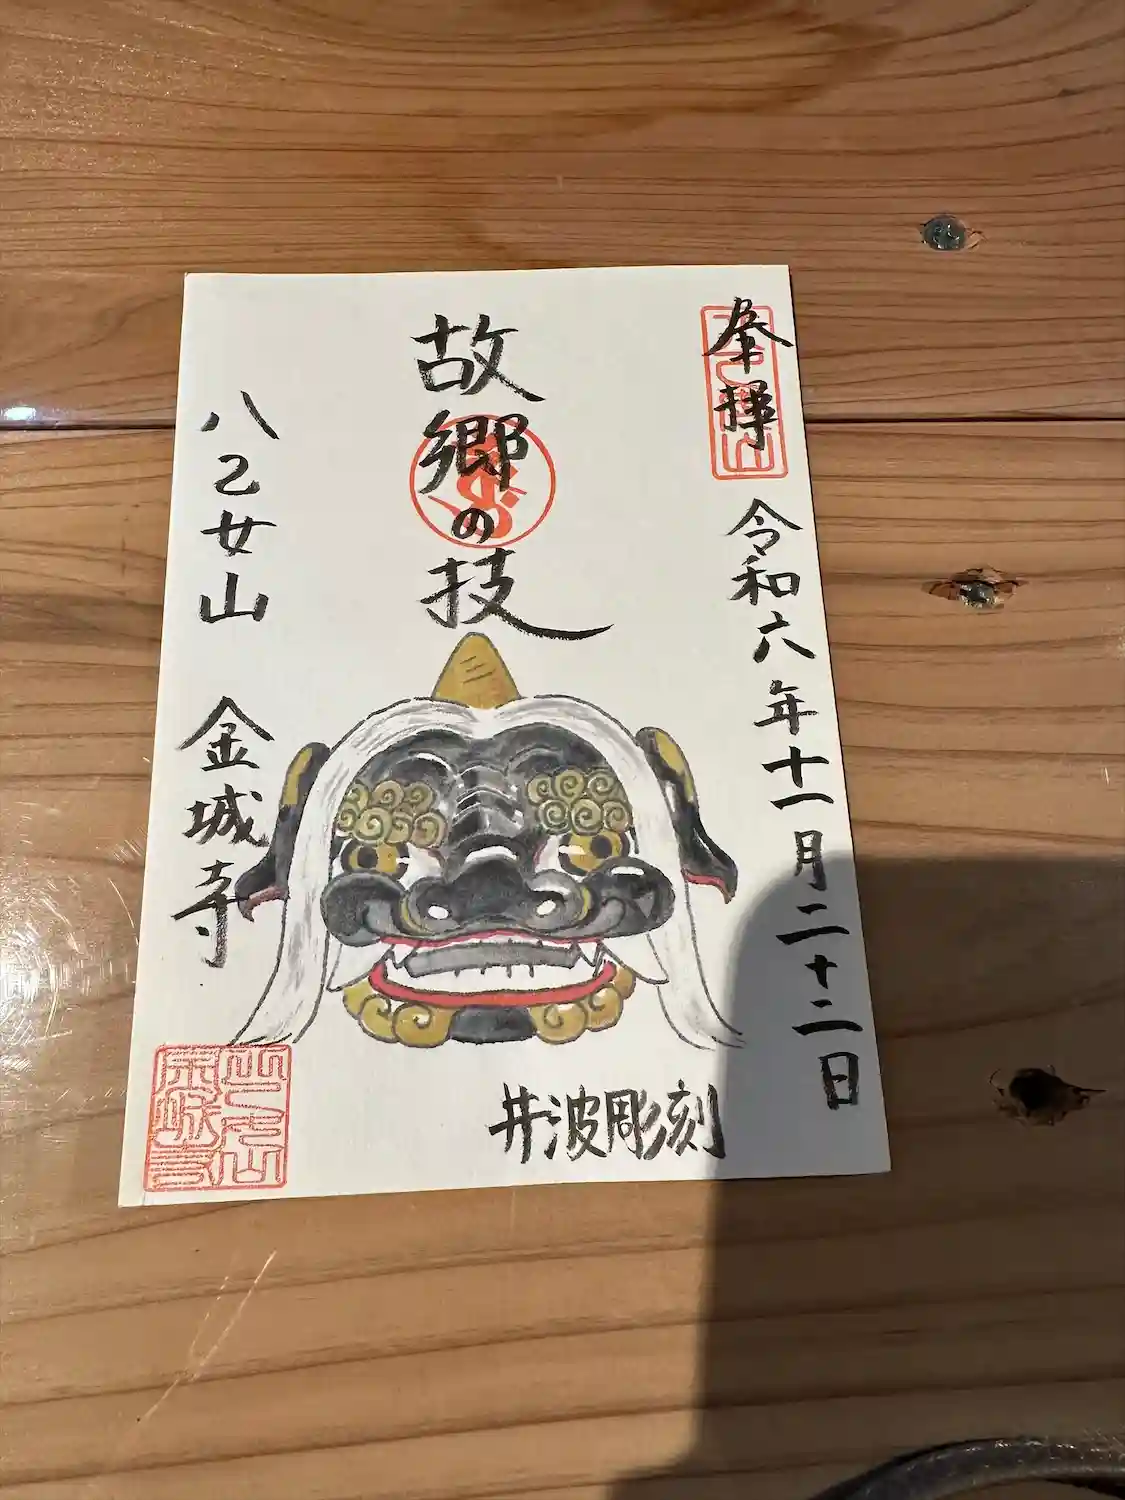 奉拝
令和六年十一月二十二日
故郷の技
八乙女山 金城寺
井波彫刻